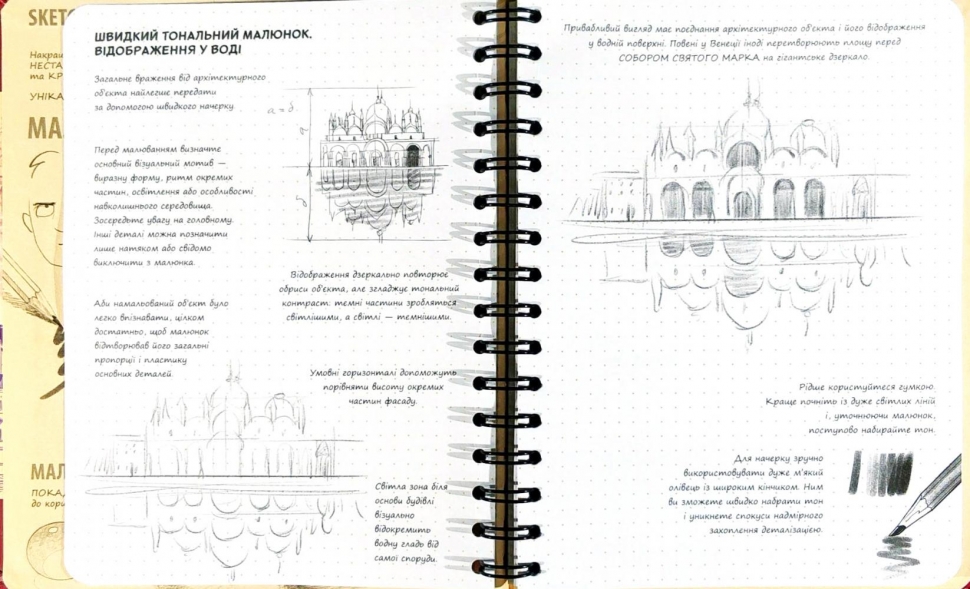 SKET
Накращ
НЕСТА
та КР
УНІКА
МА
МАЛ
ПОКА
до кори
ШВИДКИЙ ТОНАЛЬНИЙ МАЛЮНОК.
ВІДОБРАЖЕННЯ У ВОДІ
Загальне враження від архітектурного
об'єкта найлегше передати
за допомогою швидкого начерку.
a = b
a
b
Перед малюванням визначте
основний візуальний мотив —
виразну форму, ритм окремих
частин, освітлення або особливості
навколишнього середовища.
Зосередьте увагу на головному.
Інші деталі можна позначити
лише натяком або свідомо
виключити з малюнка.
Відображення дзеркально повторює
обриси об'єкта, але згладжує тональний
контраст: темні частини зробляться
світлішими, а світлі — темнішими.
Аби намальований об'єкт було
легко впізнавати, цілком
достатньо, щоб малюнок
відтворював його загальні
пропорції і пластику
основних деталей.
Умовні горизонталі допоможуть
порівняти висоту окремих
частин фасаду.
Світла зона біля
основи будівлі
візуально
відокремить
водну гладь від
самої споруди.
Привабливий вигляд має поєднання архітектурного об'єкта і його відображення
у водній поверхні. Повені у Венеції іноді перетворюють площу перед
СОБОРОМ СВЯТОГО МАРКА на гігантське дзеркало.
Рідше користуйтеся гумкою.
Краще почніть із дуже світлих ліній
і, уточнюючи малюнок,
поступово набирайте тон.
Для начерку зручно
використовувати дуже м'який
олівець із широким кінчиком. Ним
ви зможете швидко набрати тон
і уникнете спокуси надмірного
захоплення деталізацією.